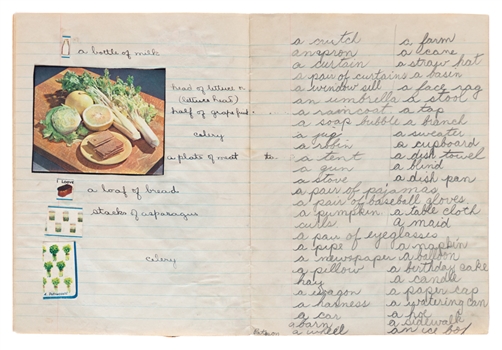 a bottle of milk
head of lettuce
(lettuce head)
half of grapefruit
celery
a plate of meat
1 Loaf
a loaf of bread
stacks of asparagus
celery
a crutch a farm
an apron a cane
a curtain a straw hat
a pair of curtains a basin
a window sill a face rag
an umbrella a stool
a raincoat a tap
a soap bubble a branch
a pug a sweater
a robin a cupboard
a tent a dish towel
a gun a blind
a stove a dish pan
a pair of pajamas
a pair of baseball gloves
a pumpkin a table cloth
curls a maid
a pair of eyeglasses
a pipe a napkin
a newspaper a balloon
a pillow a birthday cake
hay a candle
a wagon a paper cap
a harness a watering can
a car a hoe
a barn a sidewalk
a wheel an ice box